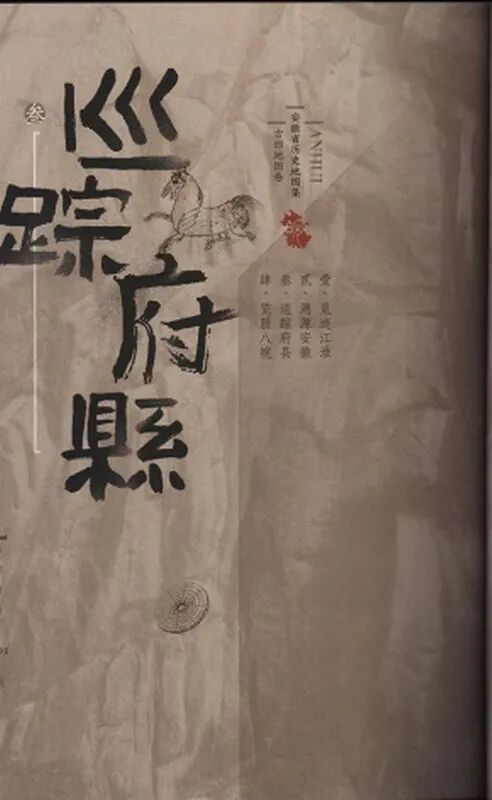 叁
巡踪府縣
ANHUI
安徽省历史地图集
古旧地图卷
壹·觅迹江淮
贰·溯源安徽
叁·巡踪府县
肆·览胜八皖